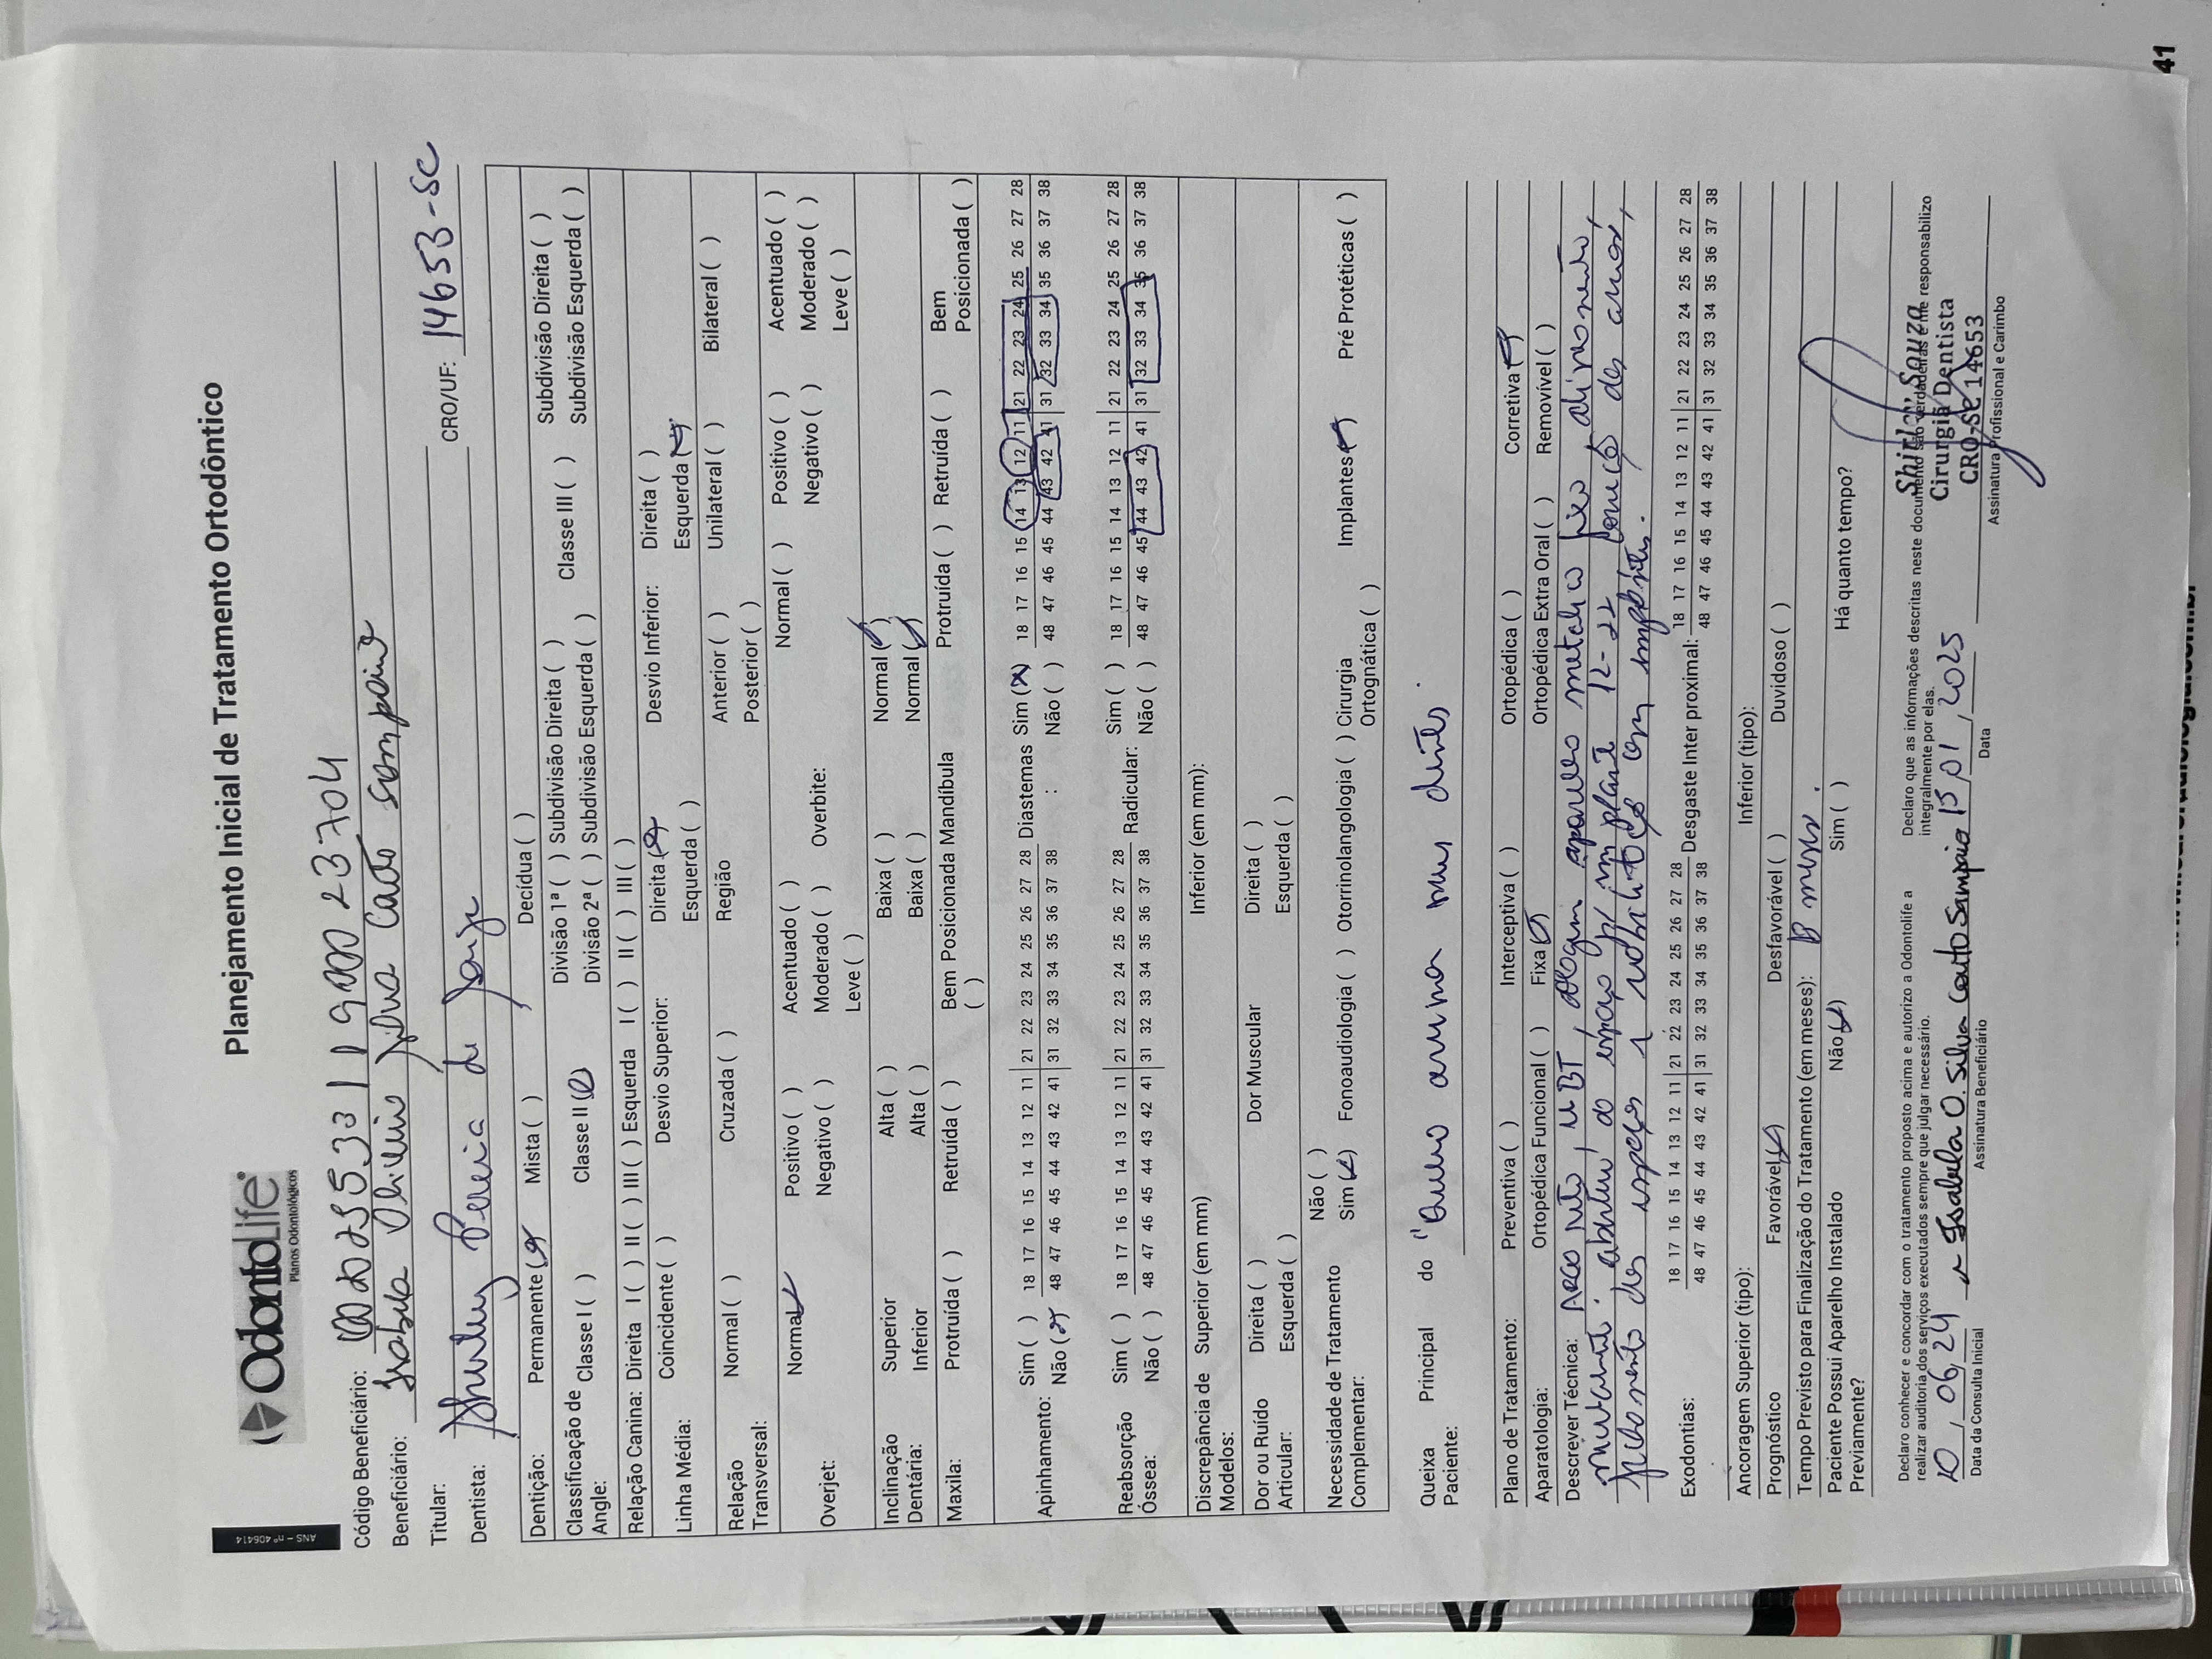 ANS - nº 406414
OdontoLife
Planos Odontológicos
Planejamento Inicial de Tratamento Ortodôntico
Código Beneficiário:
Beneficiário: Isabela Oliveira Silva Couto Sampaio
Titular:
Dentista: Shirley Pereira de Souza CRO/UF: 14653-SC
Dentição: Permanente ( ) Mista ( ) Decídua ( )
Classificação de Angle: Classe I ( ) Classe II ( ) Divisão 1ª ( ) Subdivisão Direita ( ) Classe III ( ) Subdivisão Direita ( )
Divisão 2ª ( ) Subdivisão Esquerda ( ) Subdivisão Esquerda ( )
Relação Canina: Direita I ( ) II ( ) III ( ) Esquerda I ( ) II ( ) III ( )
Linha Média: Coincidente ( ) Desvio Superior: Direita ( ) Desvio Inferior: Direita ( )
Esquerda ( ) Esquerda ( )
Relação Transversal: Normal ( ) Cruzada ( ) Região Anterior ( ) Unilateral ( ) Bilateral ( )
Posterior ( )
Overjet: Normal Positivo ( ) Acentuado ( ) Overbite: Normal ( ) Positivo ( ) Acentuado ( )
Negativo ( ) Moderado ( ) Negativo ( ) Moderado ( )
Leve ( ) Leve ( )
Inclinação Dentária: Superior Alta ( ) Baixa ( ) Normal ( )
Inferior Alta ( ) Baixa ( ) Normal ( )
Maxila: Protruída ( ) Retruída ( ) Bem Posicionada ( ) Mandíbula Protruída ( ) Retruída ( ) Bem Posicionada ( )
Apinhamento: Sim ( ) 18 17 16 15 14 13 12 11 21 22 23 24 25 26 27 28 Diastemas Sim (X) 18 17 16 15 14 13 12 11 21 22 23 24 25 26 27 28
Não ( ) 48 47 46 45 44 43 42 41 31 32 33 34 35 36 37 38 : Não ( ) 48 47 46 45 44 43 42 41 31 32 33 34 35 36 37 38
Reabsorção Óssea: Sim ( ) 18 17 16 15 14 13 12 11 21 22 23 24 25 26 27 28 Radicular: Sim ( ) 18 17 16 15 14 13 12 11 21 22 23 24 25 26 27 28
Não ( ) 48 47 46 45 44 43 42 41 31 32 33 34 35 36 37 38 Não ( ) 48 47 46 45 44 43 42 41 31 32 33 34 35 36 37 38
Discrepância de Modelos: Superior (em mm) Inferior (em mm):
Dor ou Ruído Articular: Direita ( ) Dor Muscular Direita ( )
Esquerda ( ) Esquerda ( )
Necessidade de Tratamento Complementar: Não ( )
Sim ( ) Fonoaudiologia ( ) Otorinolangologia ( ) Cirurgia Ortognática ( ) Implantes ( ) Pré Protéticas ( )
Queixa Principal do Paciente: "Quero arrumar meus dentes.
Plano de Tratamento: Preventiva ( ) Interceptiva ( ) Ortopédica ( ) Corretiva ( )
Aparatologia: Ortopédica Funcional ( ) Fixa ( ) Ortopédica Extra Oral ( ) Removível ( )
Descrever Técnica: Arco reto, MBT, aparelho metálico fixo, alinhamento,
nivelamento, abertura do espaço p/ implante 12-22
fechamento dos espaços e
Exodontias: 18 17 16 15 14 13 12 11 21 22 23 24 25 26 27 28 Desgaste Inter proximal: 18 17 16 15 14 13 12 11 21 22 23 24 25 26 27 28
48 47 46 45 44 43 42 41 31 32 33 34 35 36 37 38 48 47 46 45 44 43 42 41 31 32 33 34 35 36 37 38
Ancoragem Superior (tipo): Inferior (tipo):
Prognóstico Favorável ( ) Desfavorável ( ) Duvidoso ( )
Tempo Previsto para Finalização do Tratamento (em meses):
Paciente Possui Aparelho Instalado Previamente? Não ( ) Sim ( ) Há quanto tempo?
Declaro conhecer e concordar com o tratamento proposto acima e autorizo a Odontolife a realizar auditoria dos serviços executados sempre que julgar necessário.
Declaro que as informações descritas neste documento são verdadeiras e me responsabilizo integralmente por elas.
10, 06, 24 Isabela O. Silva Couto Sampaio 15, 01, 2025
Data da Consulta Inicial Assinatura Beneficiário Data Assinatura Profissional e Carimbo
Shirley Souza
Cirurgiã Dentista
CRO-SC 14653
41